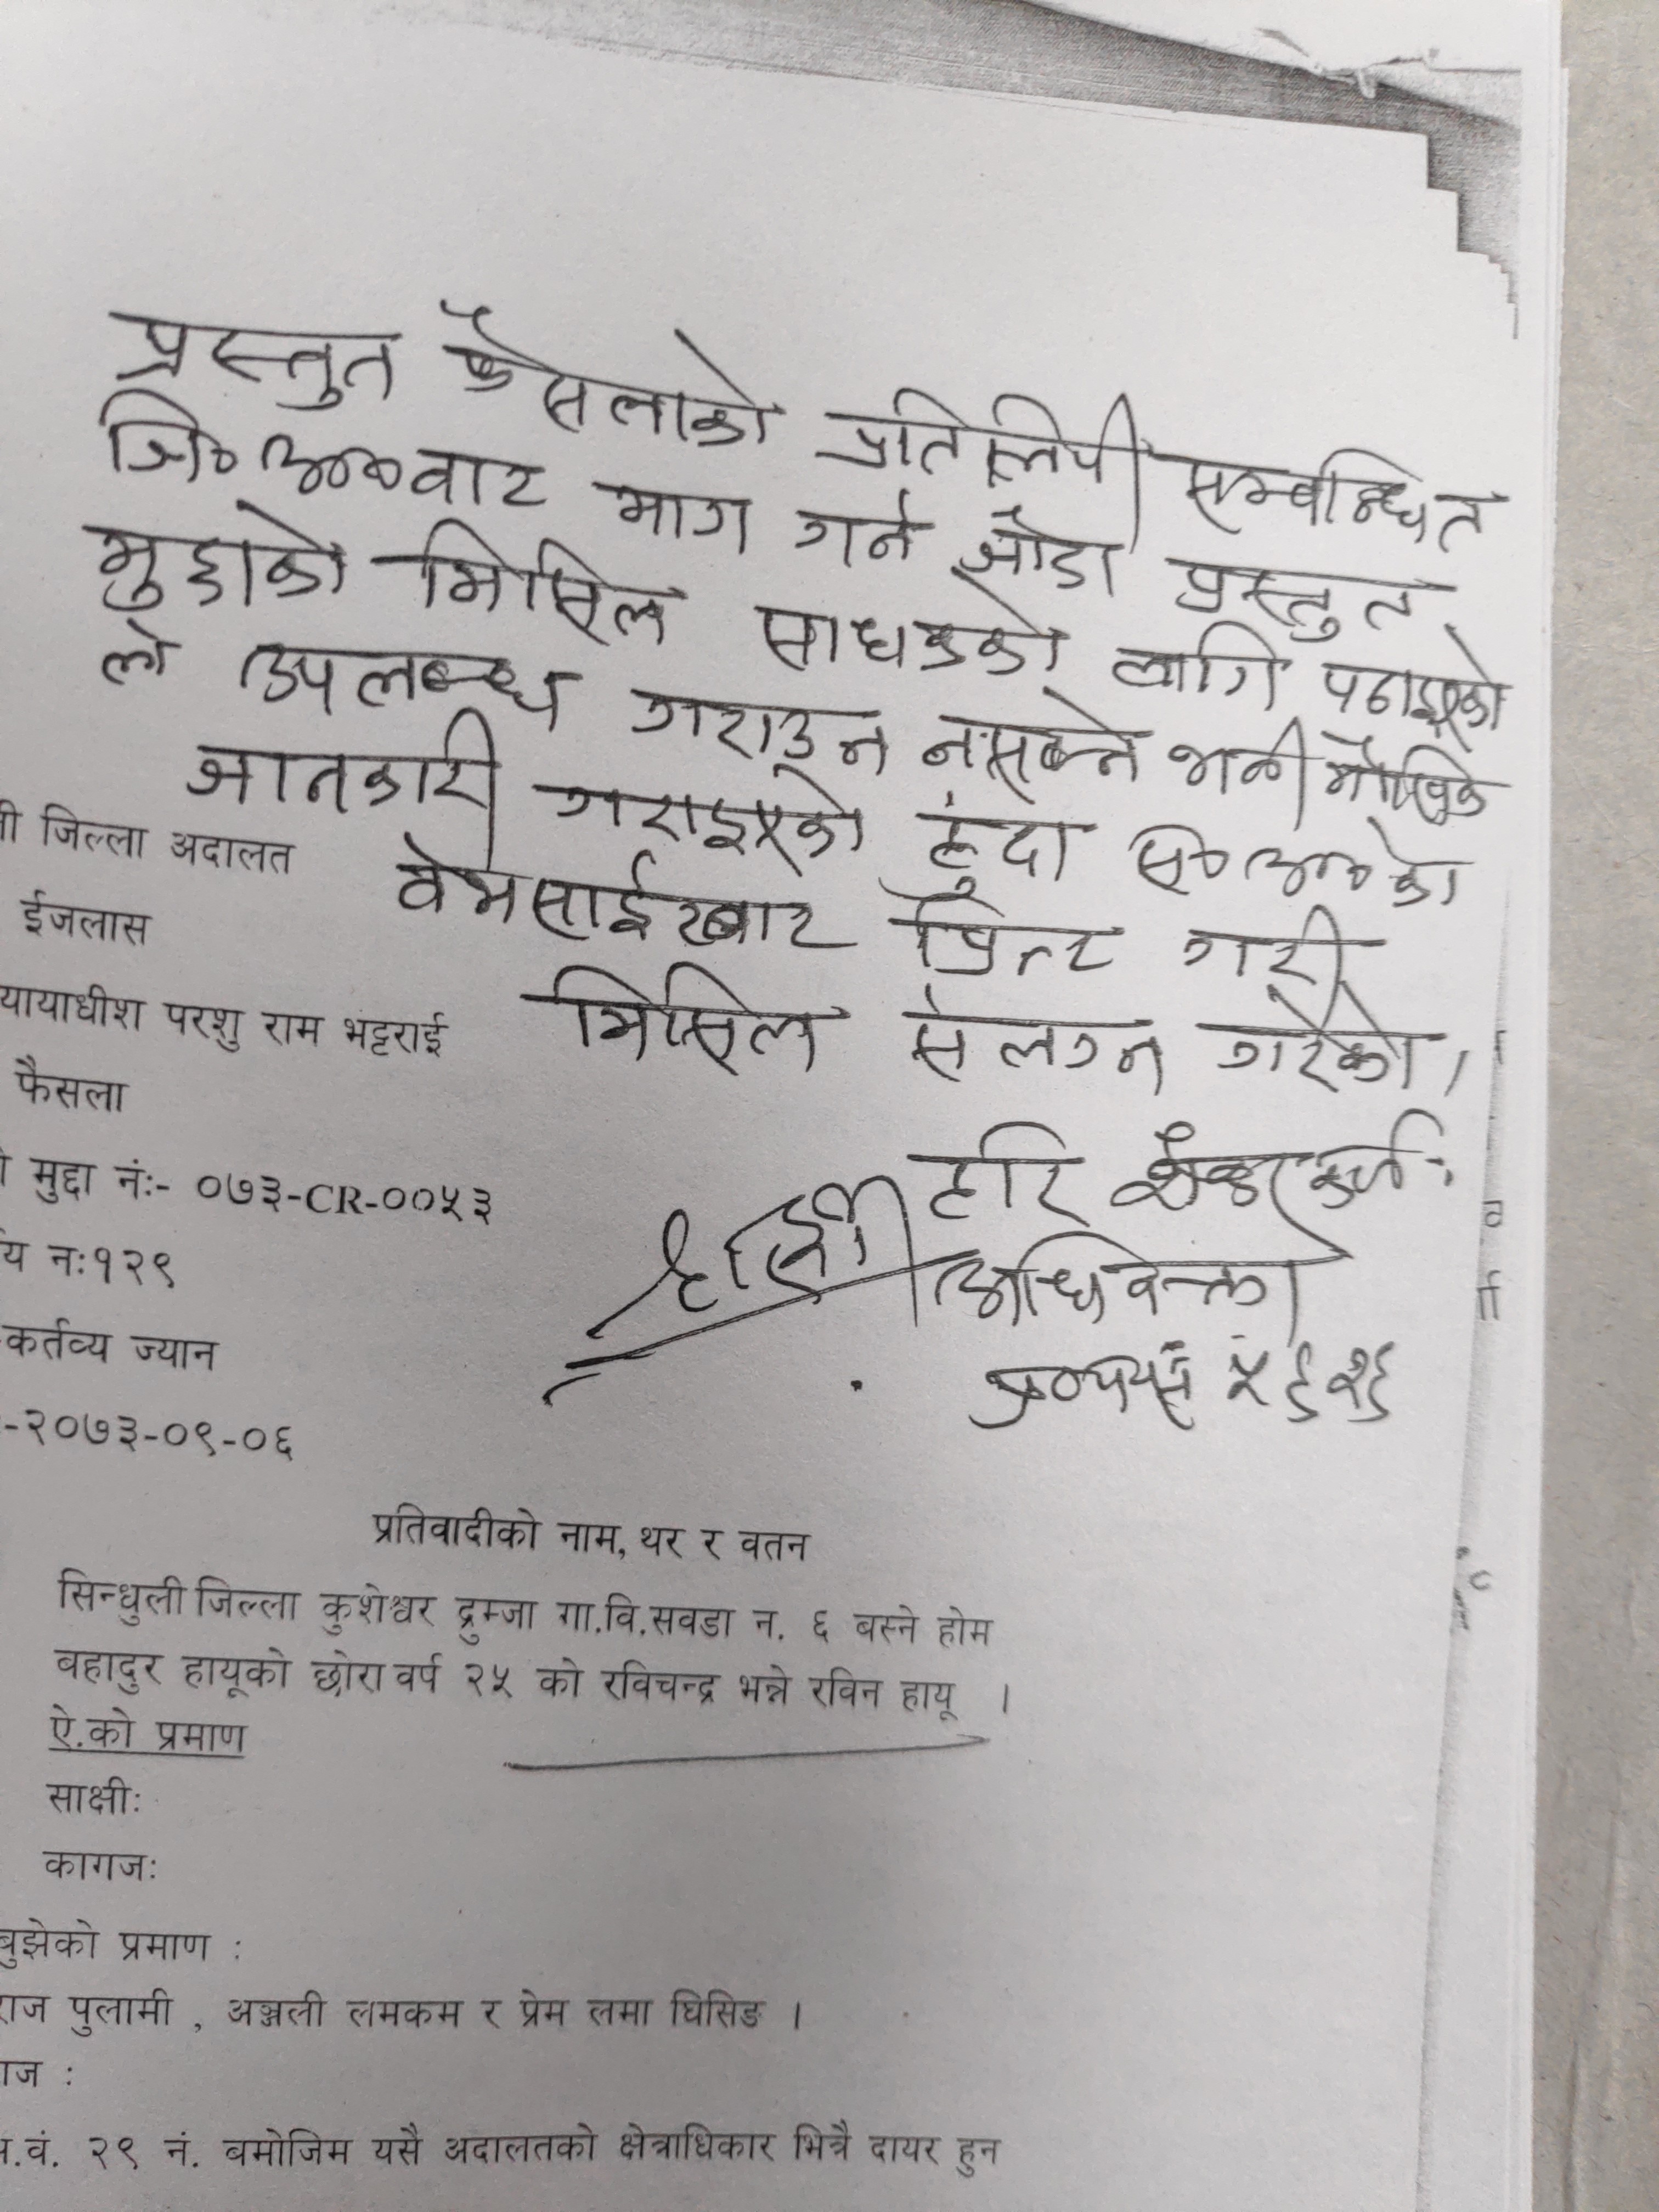 प्रस्तुत फैसलाको प्रतिलिपी सम्बन्धित
जि०अ०वाट माग गर्न जाँदा प्रस्तुत
मुद्दाको मिसिल साधकको लागि पठाइएको
ले उपलब्ध गराउन नसक्ने भनी मौखिक
जानकारी गराइएको हुंदा स०अ०को
वेभसाईटबाट प्रिन्ट गरी
मिसिल संलग्न गरेको।
हरि शंकर कर्ण
अधिवक्ता
प्र०प०नं ५६२६
ी जिल्ला अदालत
ईजलास
यायाधीश परशु राम भट्टराई
फैसला
ो मुद्दा नंः- ०७३-CR-००५३
य नः१२९
कर्तव्य ज्यान
-२०७३-०९-०६
प्रतिवादीको नाम, थर र वतन
सिन्धुली जिल्ला कुशेश्वर द्रुम्जा गा.वि.सवडा न. ६ बस्ने होम
बहादुर हायूको छोरा वर्ष २५ को रविचन्द्र भन्ने रविन हायू ।
ऐ.को प्रमाण
साक्षीः
कागजः
बुझेको प्रमाण :
राज पुलामी , अञ्जली लमकम र प्रेम लमा घिसिङ ।
गज :
.वं. २९ नं. बमोजिम यसै अदालतको क्षेत्राधिकार भित्रै दायर हुन